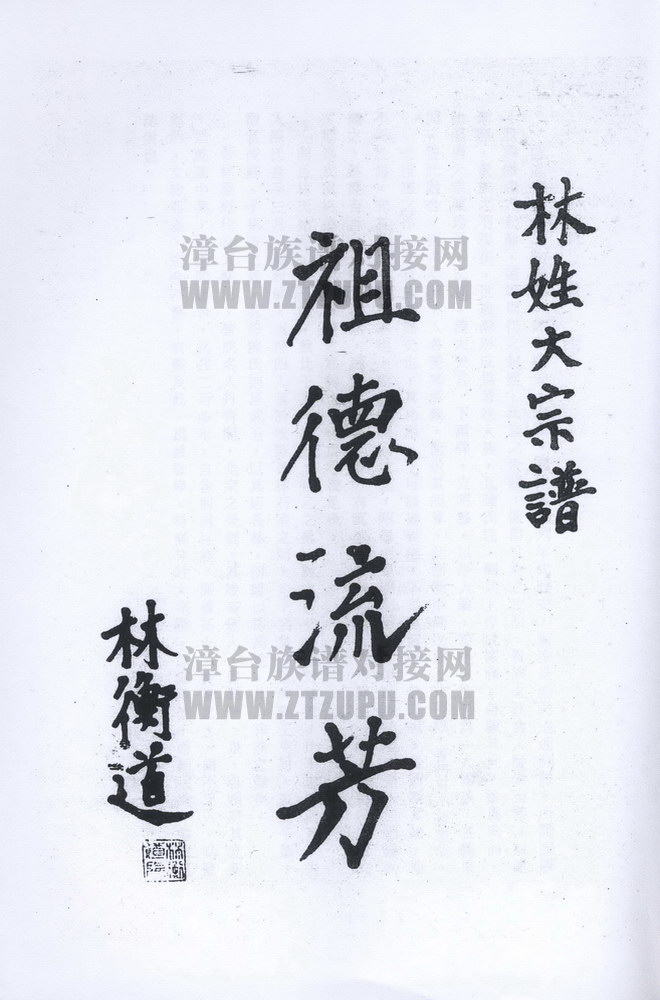 林姓大宗譜
祖德流芳
林衡道
漳台族谱对接网
WWW.ZTZUPU.COM
漳台族谱对接网
WWW.ZTZUPU.COM